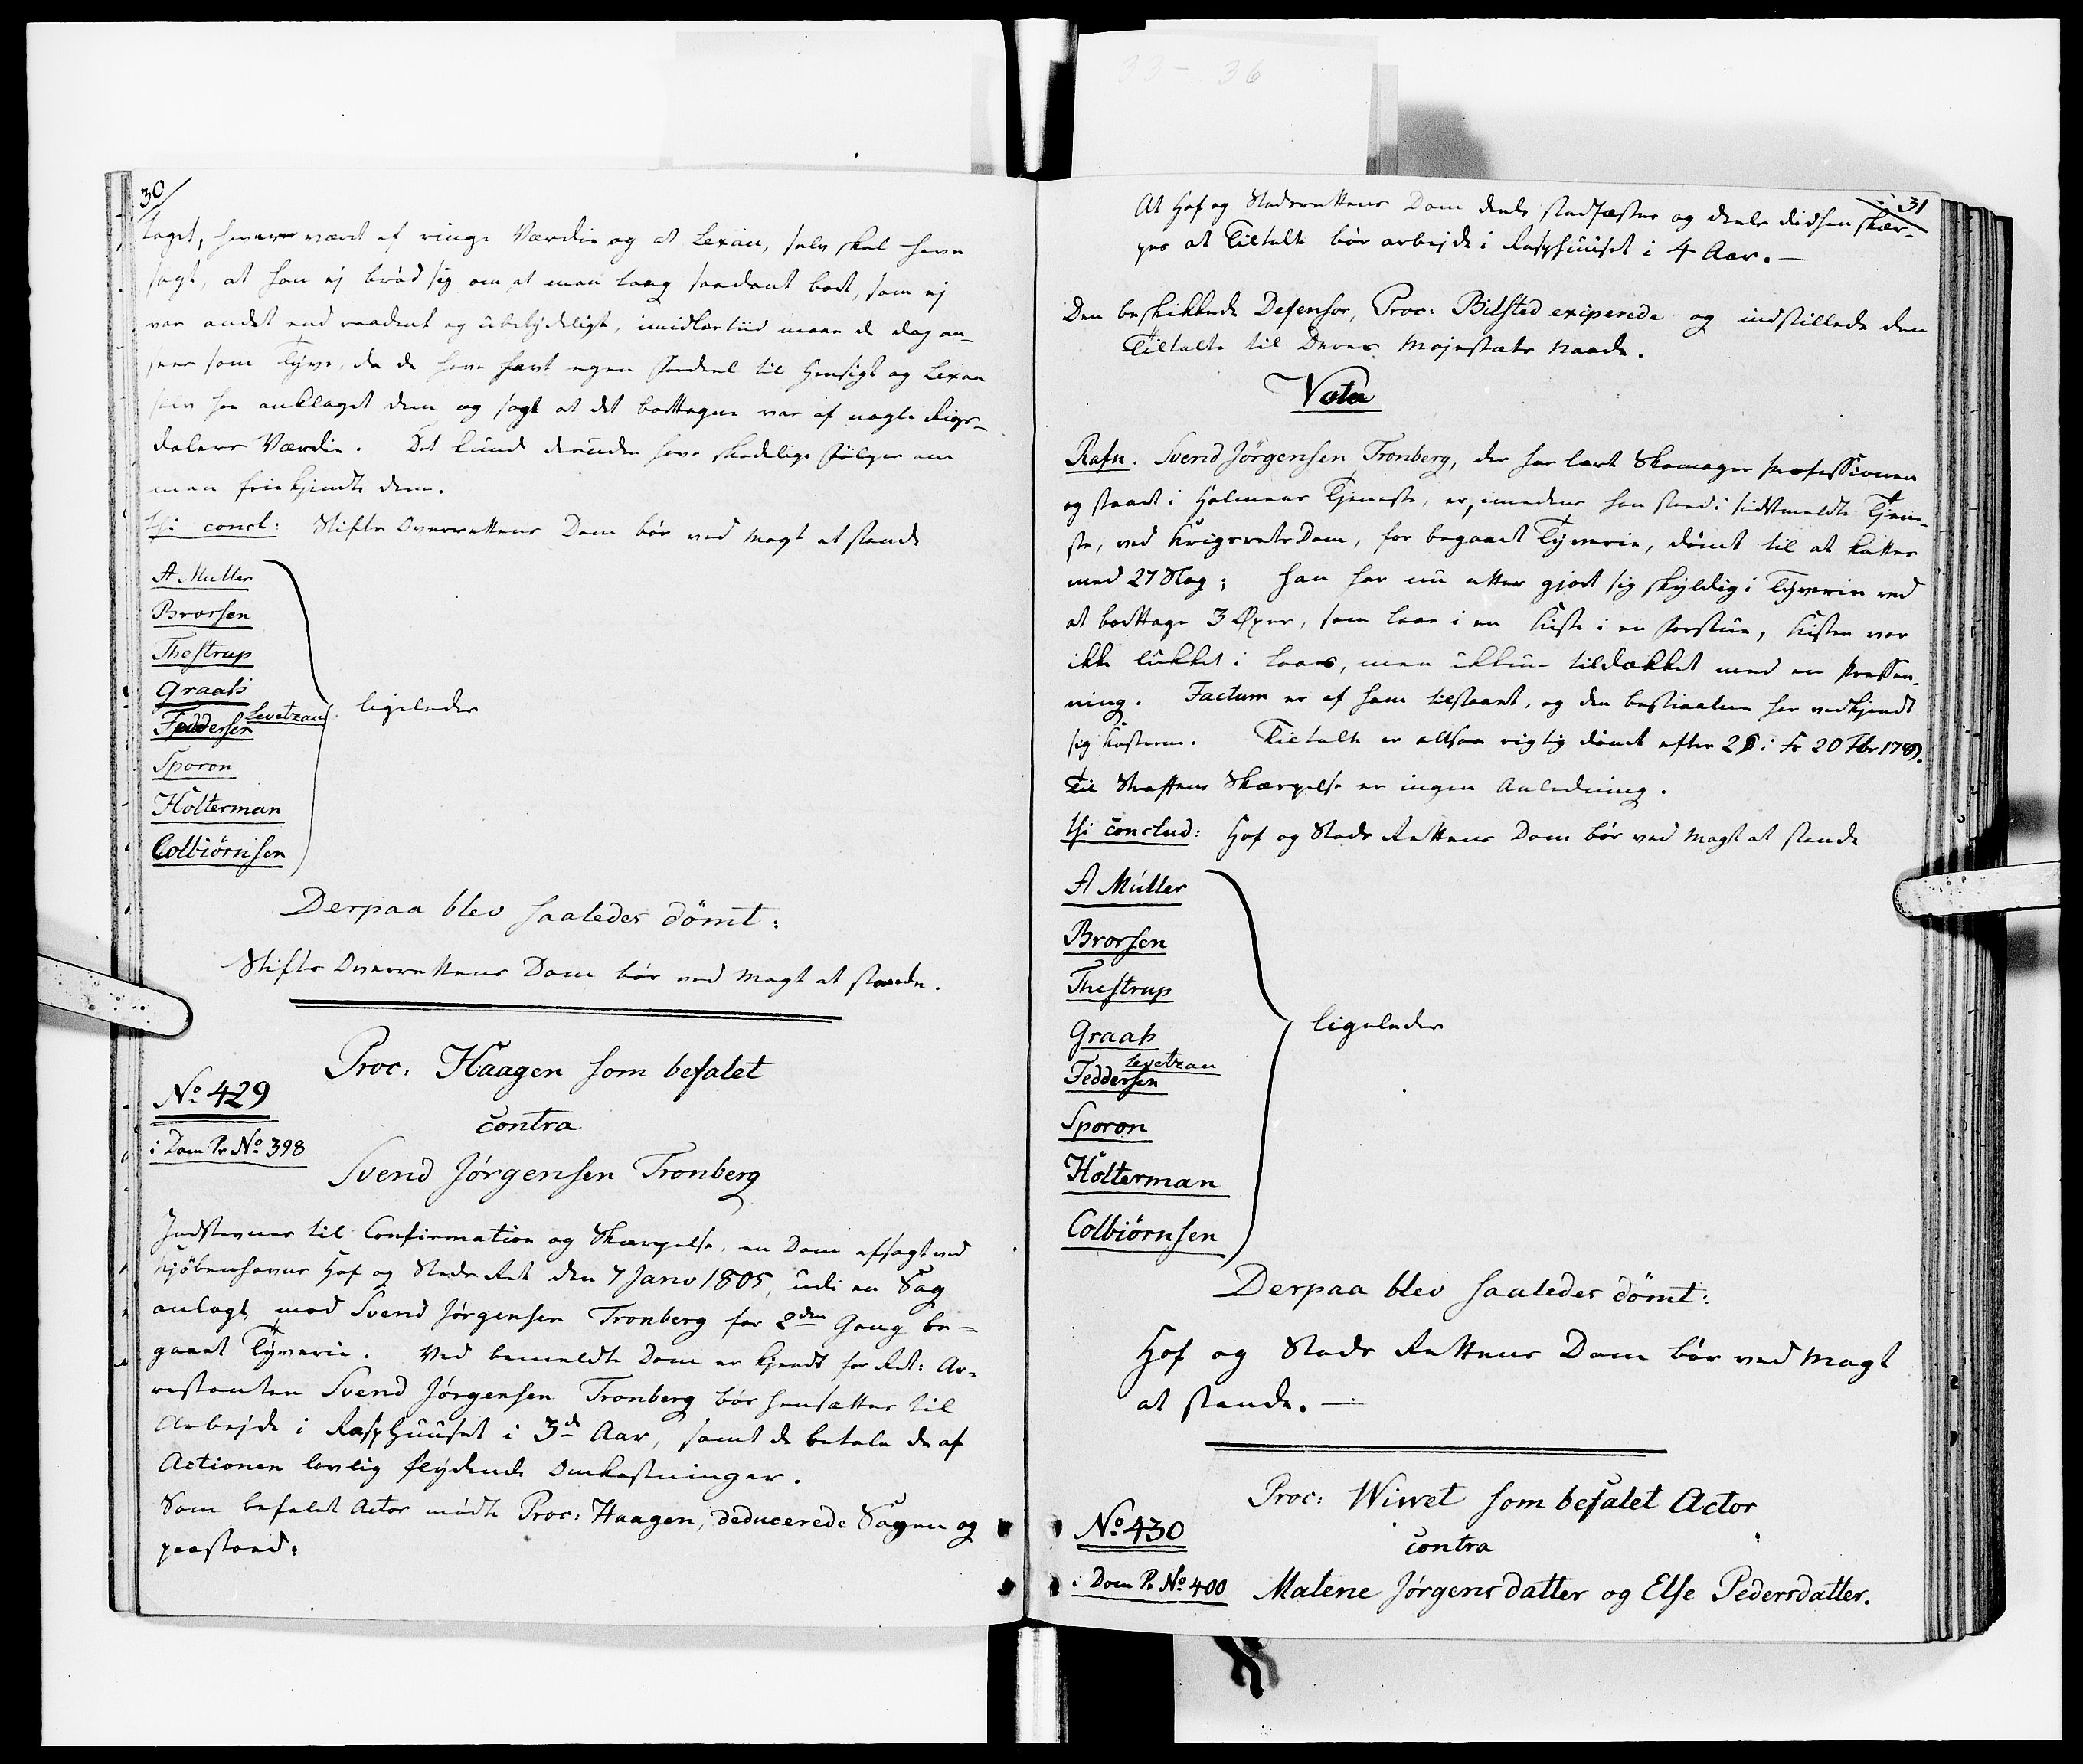 30
taget, have været af ringe Værdie og at Lexau, selv skal have
sagt, at han ej brød sig om at man taeg saadant bort, som ej
var andet end raadent og ubetydeligt, imidlertiid maae de dog an-
sees som Tyve, da de have havt egen Fordeel til Hensigt og Lexau
selv har anklaget dem og sagt at det borttagne var af nogle Rigs-
dalers Værdie. Det kunde desuden have skadelige Følger om
man friekjendte dem.
thi concl: Stifts Overrettens Dom bør ved Magt at stande
A Muller
Brorsen
Thestrup
Graah
Levetzau
Feddersen
Sporon
Holterman
Colbiørnsen
ligeledes
Derpaa blev saaledes dömt:
Stifts Overrettens Dom bør ved Magt at stande.
Proc: Haagen som befalet
No 429
contra
i Dom Pr No 398
Svend Jørgensen Tronberg
Indstevnes til Confirmation og Skærpelse, en Dom afsagt ved
Kjöbenhavns Hof og Stads Ret den 7 Janv 1805, udi en Sag
anlagt mod Svend Jørgensen Tronberg for 2den Gang be-
gaaet Tyverie. Ved bemeldte Dom er kjendt for Ret: Ar-
restanten Svend Jørgensen Tronberg bör hensættes til
Arbejde i Rasphuuset i 3de Aar, samt de betale de af
Actionen lovlig flydende Omkostninger.
Som befalet Actor mödte Proc: Haagen, deducerede Sagen og
paastoed:
31
At Hof og Stadsrettens Dom deels stadfæstes og deels didhen skær-
pes at Tiltalte bör arbejde i Rasphuuset i 4 Aar.
Den beskikkede Defensor, Proc: Bilsted exciperede og indstillede den
Tiltalte til Deres Majestæts Naade.
Vota
Rafn. Svend Jörgensen Tronberg, der har lært Skomager Professionen
og staaet i Holmens Tjeneste, er, imedens han stoed i sidstmeldte Tjene-
ste, ved KrigsretsDom, for begaaet Tyverie, dömt til at kattes
med 27 Slag; han har nu atter gjort sig skyldig i Tyverie ved
at borttage 3 Øxer, som laae i en Kiste i en Forstue, Kisten var
ikke lukket i Laas, men ikkun tildækket med en Pressen-
ning. Factum er af ham tilstaaet, og den bestiaalne har vedkjendt
sig Kosterne. Tiltalte er altsaa rigtig dömt efter 2 § i Fr 20 Fbr 1789.
til Straffens Skærpelse er ingen Anledning.
thi conclud: Hof og Stads Rettens Dom bör ved Magt at stande
A Müller
Brorsen
Thestrup
Graah
Levetzau
Feddersen
Sporon
Holterman
Colbiörnsen
ligeledes
Derpaa blev saaledes dömt:
Hof og Stads Rettens Dom bör ved Magt
at stande.
Proc: Wivet som befalet Actor
No 430
contra
i Dom P. No 400
Malene Jørgensdatter og Else Pedersdatter.